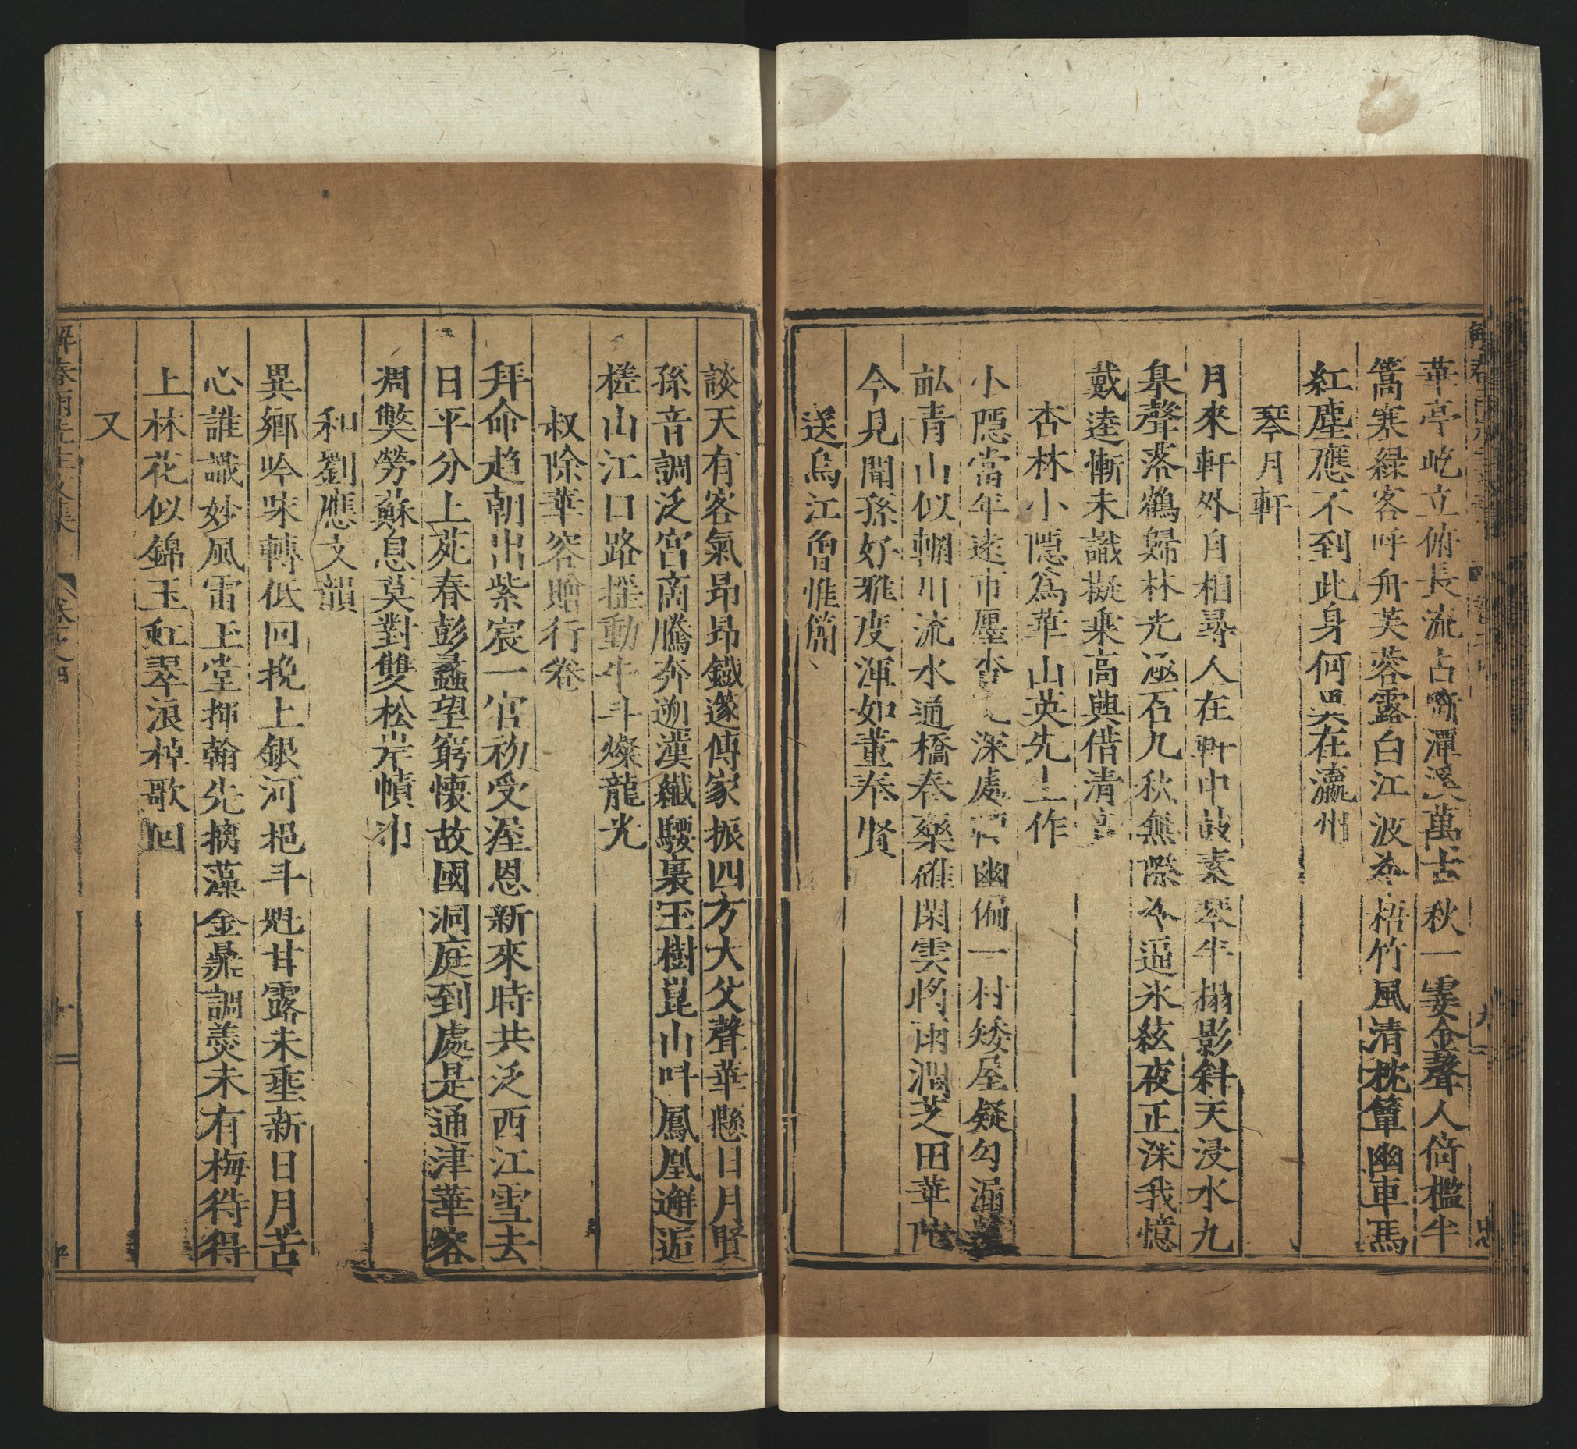 華亭屹立俯長流占斷潭溪萬古秋一霎金聲人倚檻半
篙寒緑客呼舟芙蓉露白江波冷梧竹風清枕簟幽車馬
紅塵應不到此身何異在瀛州
琴月軒
月來軒外自相尋人在軒中鼓素琴半榻影斜天浸水九
臯聲落鶴歸林光涵石几秋無際冷逼氷絃夜正深我憶
戴逵慚未識擬乘高興借清
杏林小隠爲華山英先生作
小隠當年遠市廛杏 深處 幽偏一村矮屋疑勾漏
畝青山似輞川流水通橋春藥碓閑雲將雨潤芝田華陀
今見聞孫好雅度渾如董奉賢
送烏江魯惟簡
談天有客氣昻昻鐵篴傳家振四方大父聲華懸日月賢
孫音調泛宫商騰奔逈漢纎騕褭玉樹崑山呌鳳凰邂逅
槎山江口路摇動牛斗燦龍光
叔除華容贈行卷
拜命趋朝出紫宸一官初受渥恩新來時共泛西江雪去
日平分上苑春彭蠡望窮懷故國洞庭到處是通津華容
凋獘勞蘇息莫對雙松岸幘巾
和劉應文韻
異鄉吟味轉低回挽上銀河挹斗魁甘露未垂新日月苦
心誰識妙風雷玉堂揮翰先摛藻金鼎調羮未有梅待得
上林花似錦玉缸翠浪棹歌回
又
解春雨先生文集 卷之四 十一